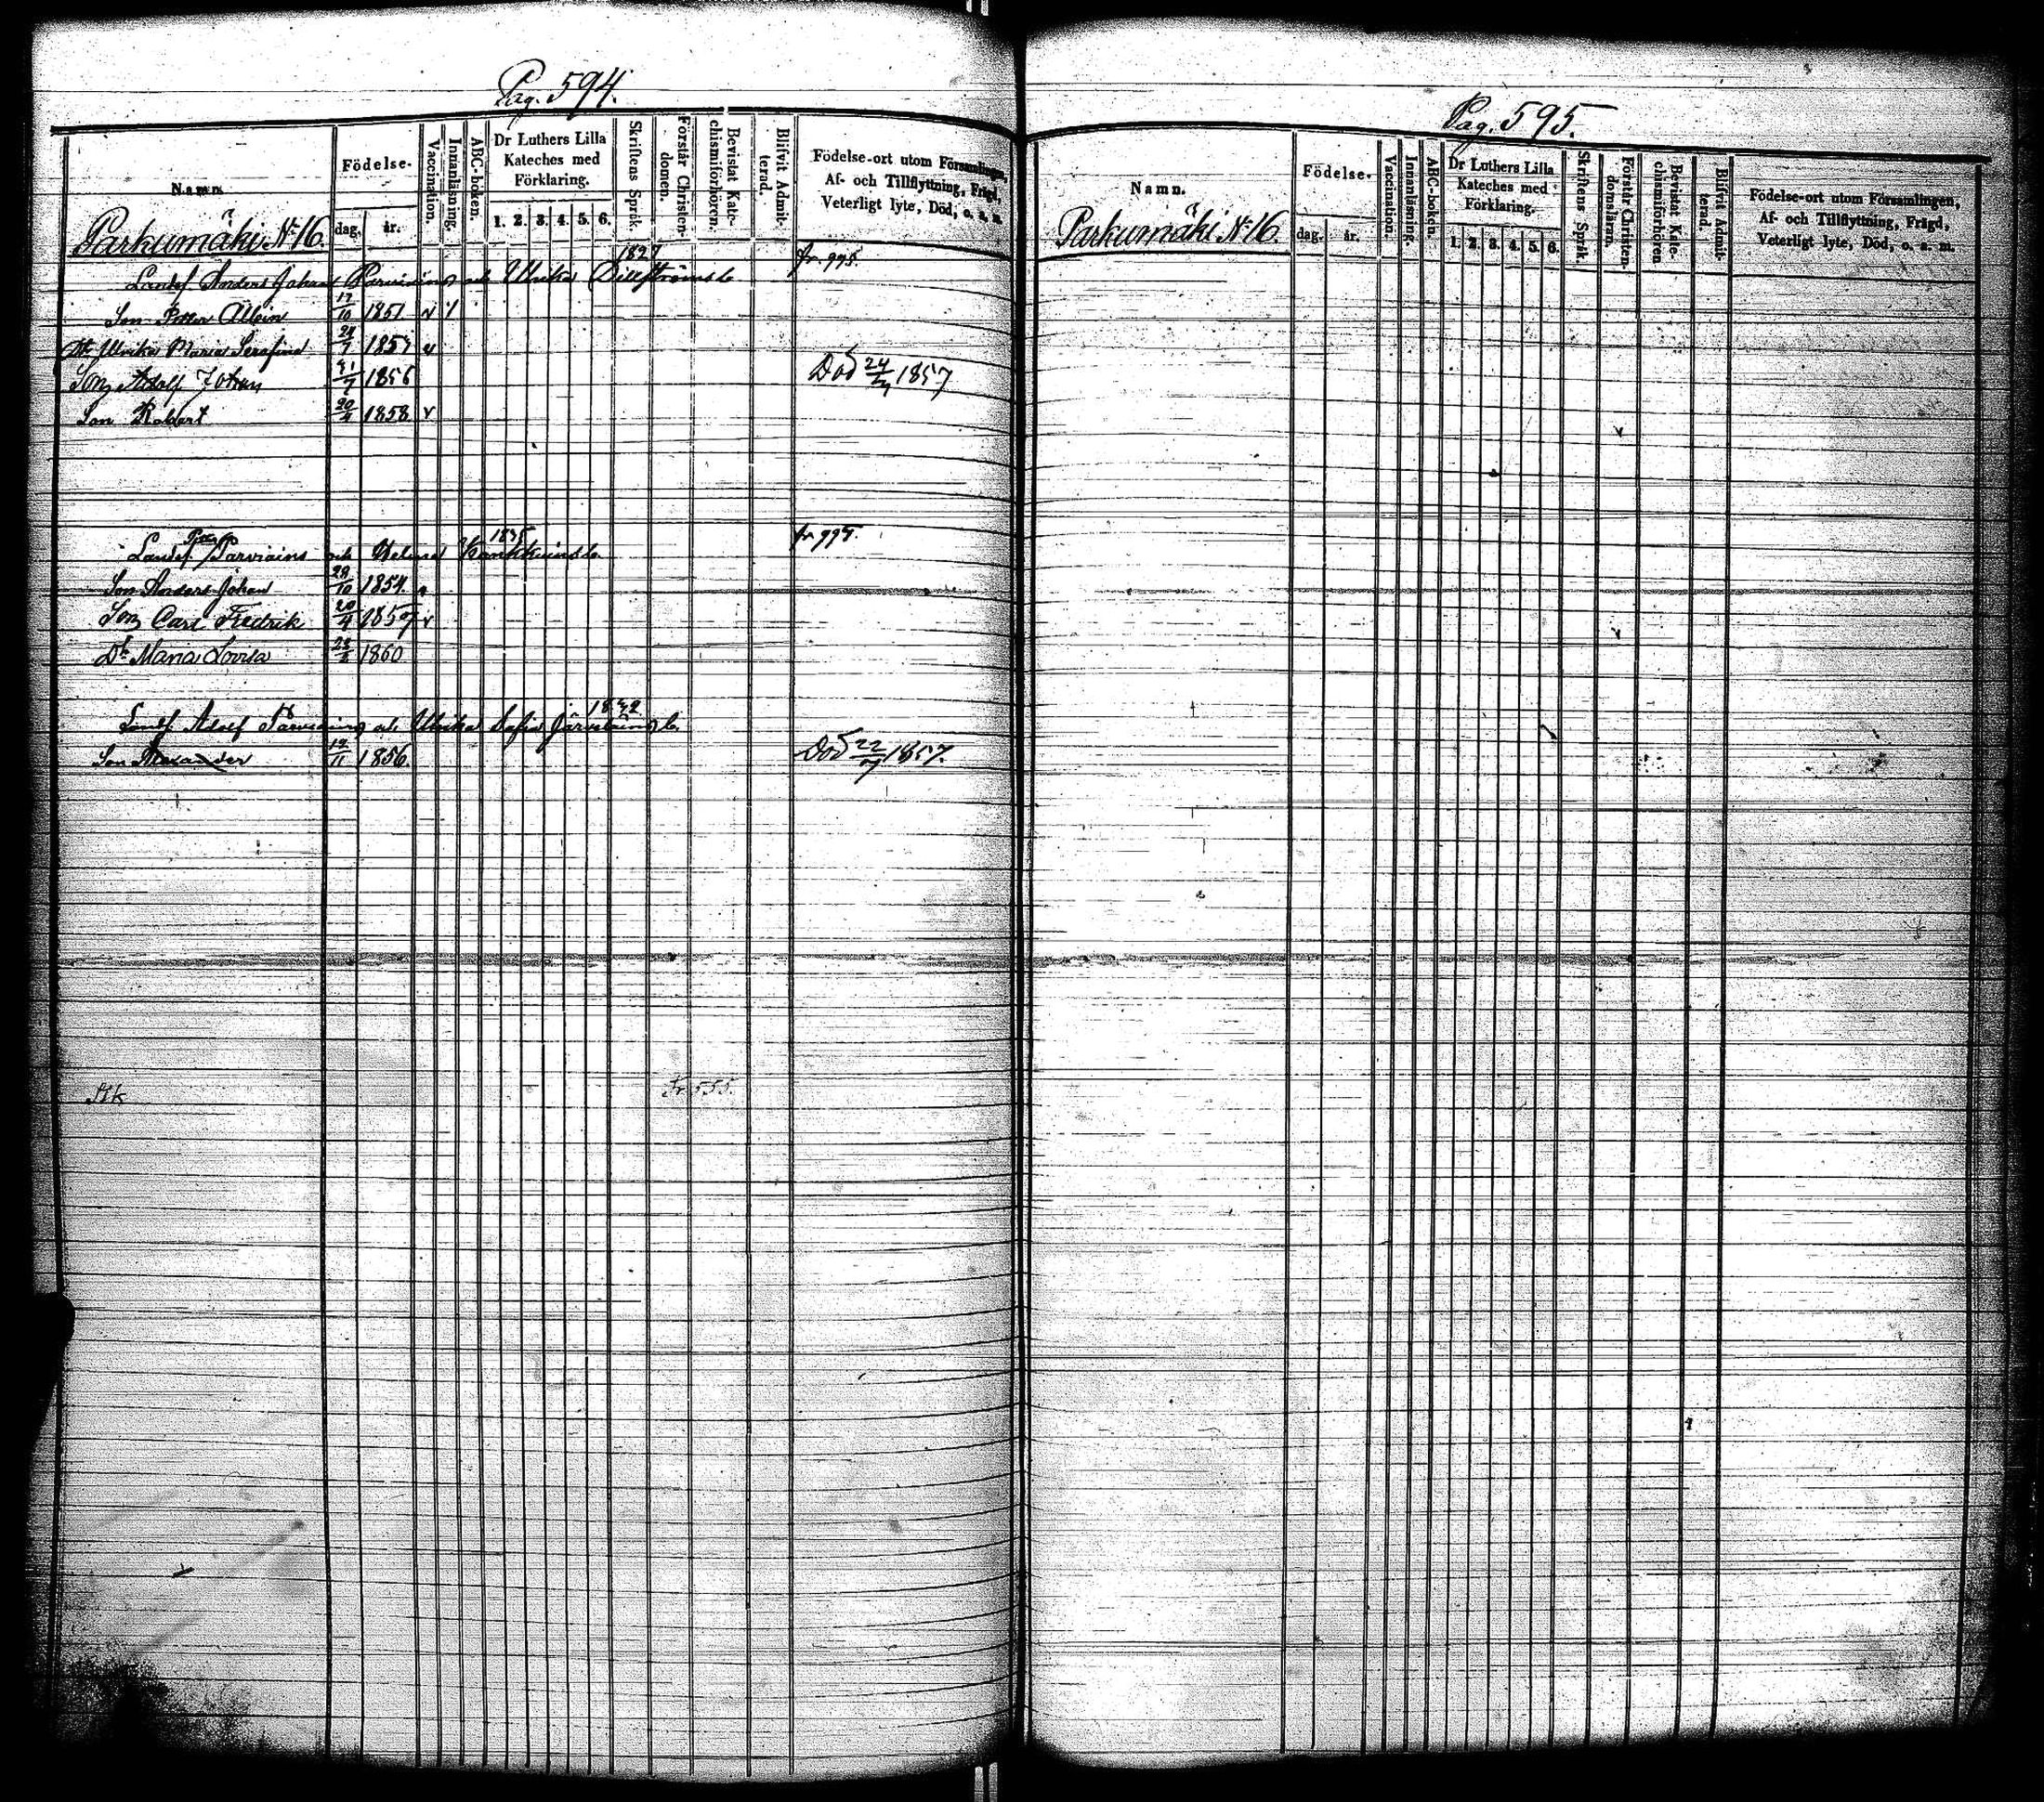 Pag. 594.
Namn.
Födelse-
dag. år.
Vaccination.
Innanläsning.
ABC-boken.
Dr Luthers Lilla
Kateches med
Förklaring.
1. 2. 3. 4. 5. 6.
Skriftens Språk.
Förstår Christen-
domen.
Bevistat Kate-
chismiförhören.
Blifvit Admit-
terad.
Födelse-ort utom Församlingen,
Af- och Tillflyttning, Frägd,
Veterligt lyte, Död, o. s. m.
Parkumäki N:16.
1827
fr. 995.
Landsf Anders Johan Parviains och Ulrika
Son Petter Albin 17/10 1851 v
Dr Ulrika Maria Serafina 1857 v
Son Adolf Johan 1856 Död 24/7 1857
Son Robert 20/4 1858. v
1835
Petter
Landsf Parviains och Helena fr 995.
Son Anders Johan 28/10 1854.
Son Carl Fredrik 20/4 1857 v
Dr Maria Lovisa 1860
1832
Landsf Adolf Parviains och Ulrika Sofia
Son Alexander 19/11 1856. Död 22/7 1857.
Fr 555.
Pag. 595.
Namn.
Födelse-
dag. år.
Vaccination.
Innanläsning.
ABC-boken.
Dr Luthers Lilla
Kateches med
Förklaring.
1. 2. 3. 4. 5. 6.
Skriftens Språk.
Förstår Christen-
domsläran.
Bevistat Kate-
chismiförhören
Blifvit Admit-
terad.
Födelse-ort utom Församlingen,
Af- och Tillflyttning, Frägd,
Veterligt lyte, Död, o. s. m.
Parkumäki N:16.